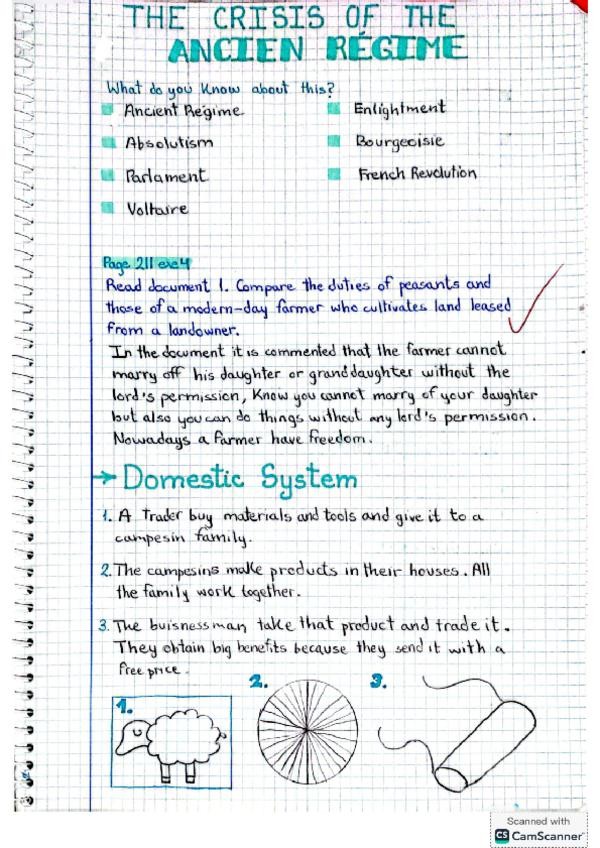 THE CRISIS OF THE
ANCIEN RÉGIME
What do you know about this?
Ancient Regime
Enlightment
Absolutism
Bourgeoisie
Parlament
French Revolution
Voltaire
Page 211 exe4
Read document 1. Compare the duties of peasants and
those of a modern-day farmer who cultivates land leased
from a landowner.
In the document it is commented that the farmer cannot
marry off his daughter or granddaughter without the
lord's permission, Know you cannot marry of your daughter
but also you can do things without any lord's permission.
Nowadays a farmer have freedom.
→ Domestic System
1. A trader buy materials and tools and give it to a
campesin family.
2. The campesins make products in their houses. All
the family work together.
3. The buisnessman take that product and trade it.
They obtain big benefits because they send it with a
free price.
1.
2.
3.
Scanned with
CS CamScanner